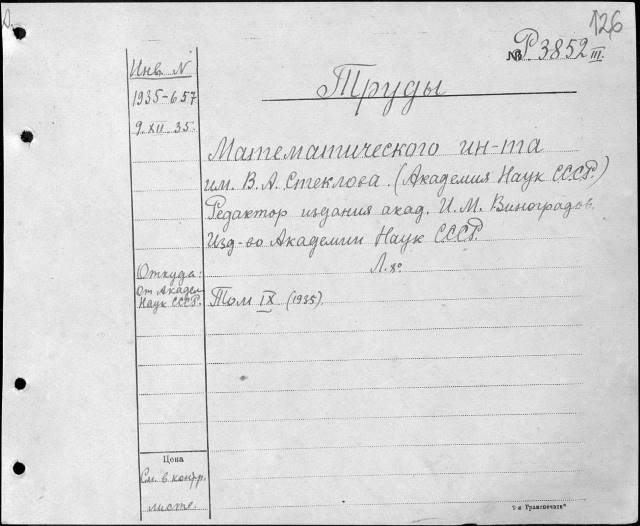 126
№ Р 3852 III.
Труды
Инв. N
1935-657
9.XII.35.
Математического ин-та
им. В. А. Стеклова. (Академия Наук СССР.)
Редактор издания акад. И. М. Виноградов.
Изд-во Академии Наук СССР.
Л. 8°
Откуда:
От Академ.
Наук СССР.
Том IX (1935).
Цена
См. в контр.
листе.